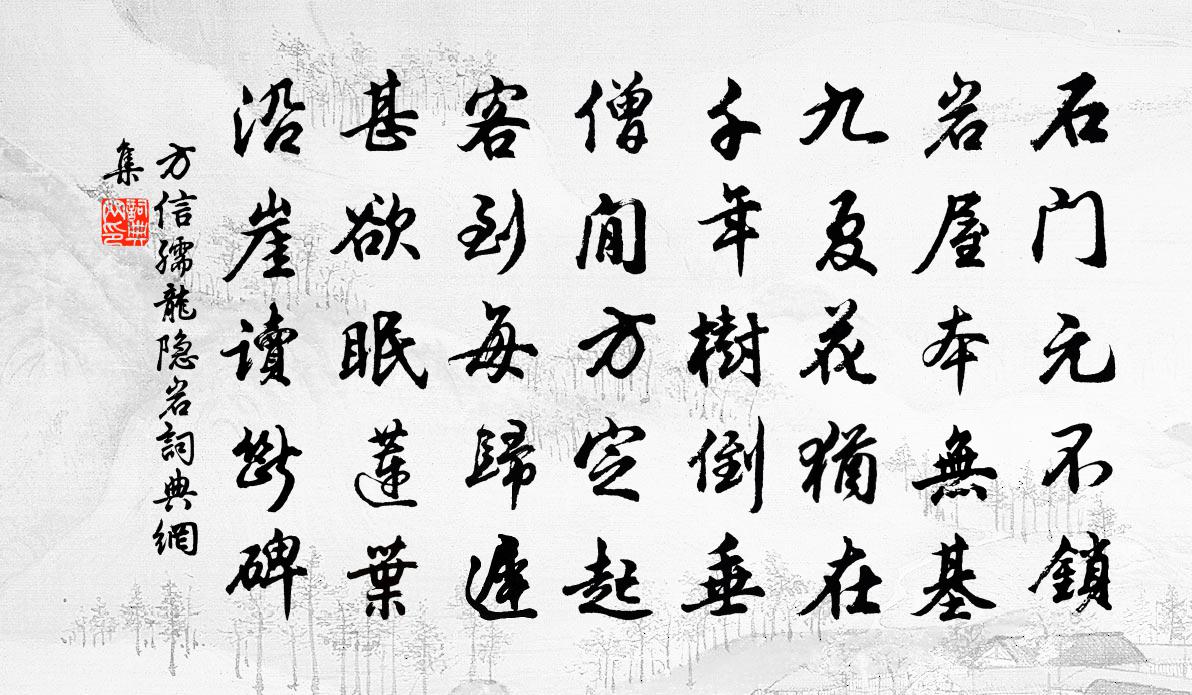 石门元不鎖
岩屋本無基
九夏花猶在
千年樹倒垂
僧閒方定起
客到每歸遲
甚欲眠蓮葉
沿崖讀斷碑
方信孺龍隐岩詞典網
集
詞典网印